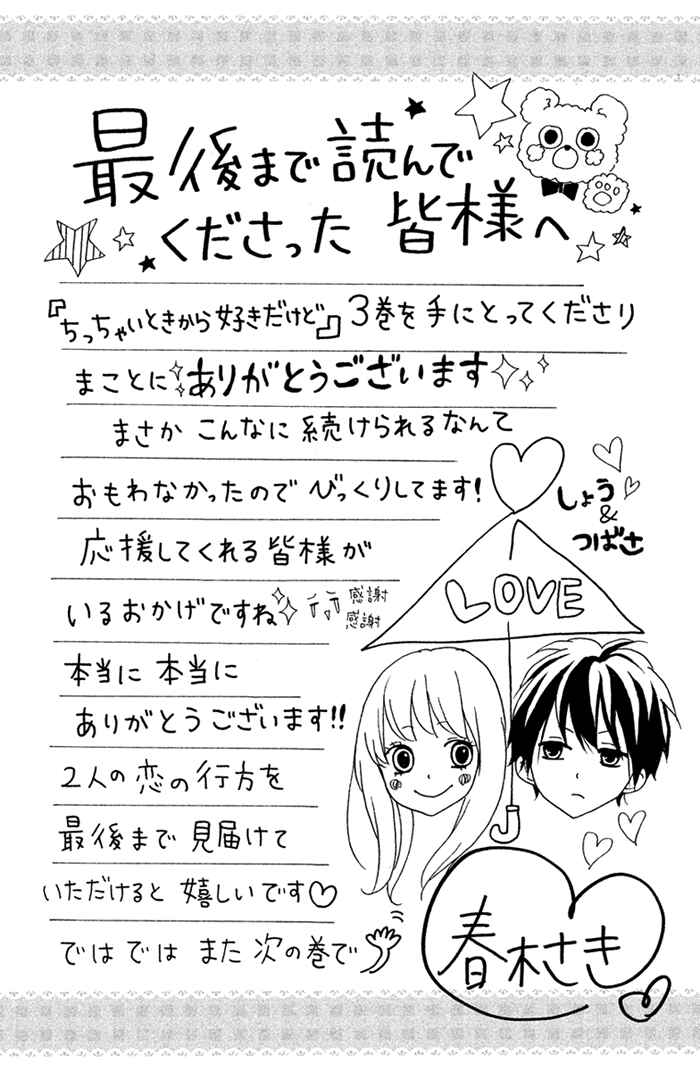 最後まで読んで
くださった 皆様へ
『ちっちゃいときから好きだけど』3巻を手にとってくださり
まことにありがとうございます
まさか こんなに 続けられるなんて
おもわなかったので びっくりしてます!
応援してくれる皆様が
いるおかげですね
感謝
感謝
本当に 本当に
ありがとうございます!!
2人の恋の行方を
最後まで 見届けて
いただけると 嬉しいです♡
ではでは また 次の巻で
しょう
&
つばさ
LOVE
春木さき